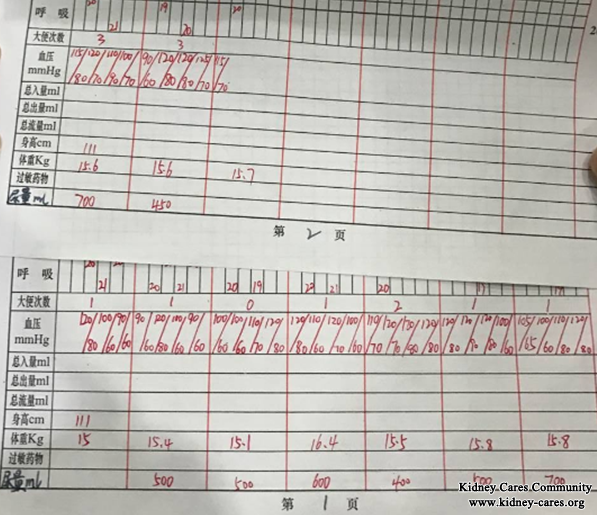 20 19 20
呼 吸 21 20
大便次数 3 3
血压 115/ 120/ 110/ 100/ 90/ 120/ 120/ 125/ 115/
mmHg 80 70 90 70 60 80 80 70 70
总入量ml
总出量ml
总流量ml
身高cm 111
体重Kg 15.6 15.6 15.7
过敏药物
尿量ml 700 450
第 2 页
呼 吸 21 20 21 20 19 21 20
大便次数 1 1 0 1 2 1 1
血压 120/ 100/ 90/ 90/ 120/ 110/ 90/ 100/ 100/ 110/ 120/ 120/ 110/ 120/ 100/ 110/ 120/ 130/ 120/ 120/ 120/ 120/ 100/ 105/ 100/ 110/ 120/
mmHg 80 60 60 60 80 60 60 60 60 70 80 80 60 70 60 70 70 90 80 80 80 60 65 60 80 80
总入量ml
总出量ml
总流量ml
身高cm 111
体重Kg 15 15.4 15.1 16.4 15.5 15.8 15.8
过敏药物
尿量ml 500 500 600 400 500 700
第 1 页
Kidney Cares Community
www.kidney-cares.org